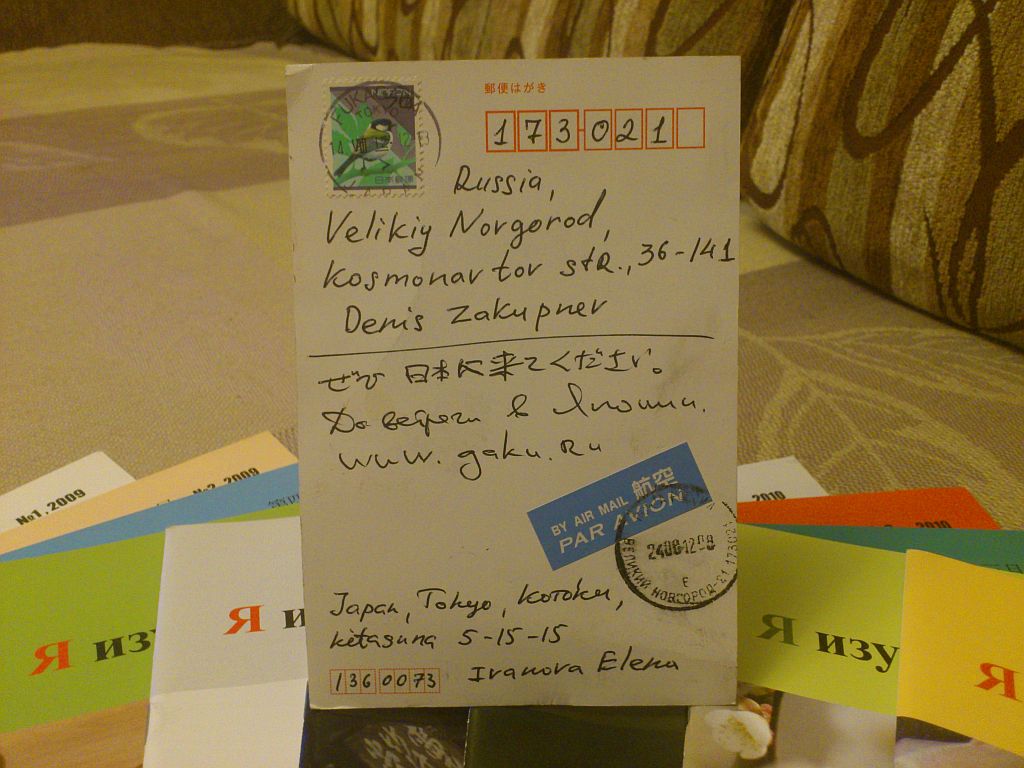 郵便はがき
173-021
Russia,
Velikiy Novgorod,
Kosmonavtov str., 36-141
Denis Zakupnev
ぜひ 日本に来てください。
До встречи в Японии.
www.gaku.ru
BY AIR MAIL 航空
PAR AVION
240812
ВЕЛИКИЙ НОВГОРОД-21 173021
Japan, Tokyo, Kotoku,
Kitasuna 5-15-15
Ivanova Elena
1360073
日本郵便
№1, 2009
№2, 2009
2010
2010
Я изу
Я и
Я изу
Я